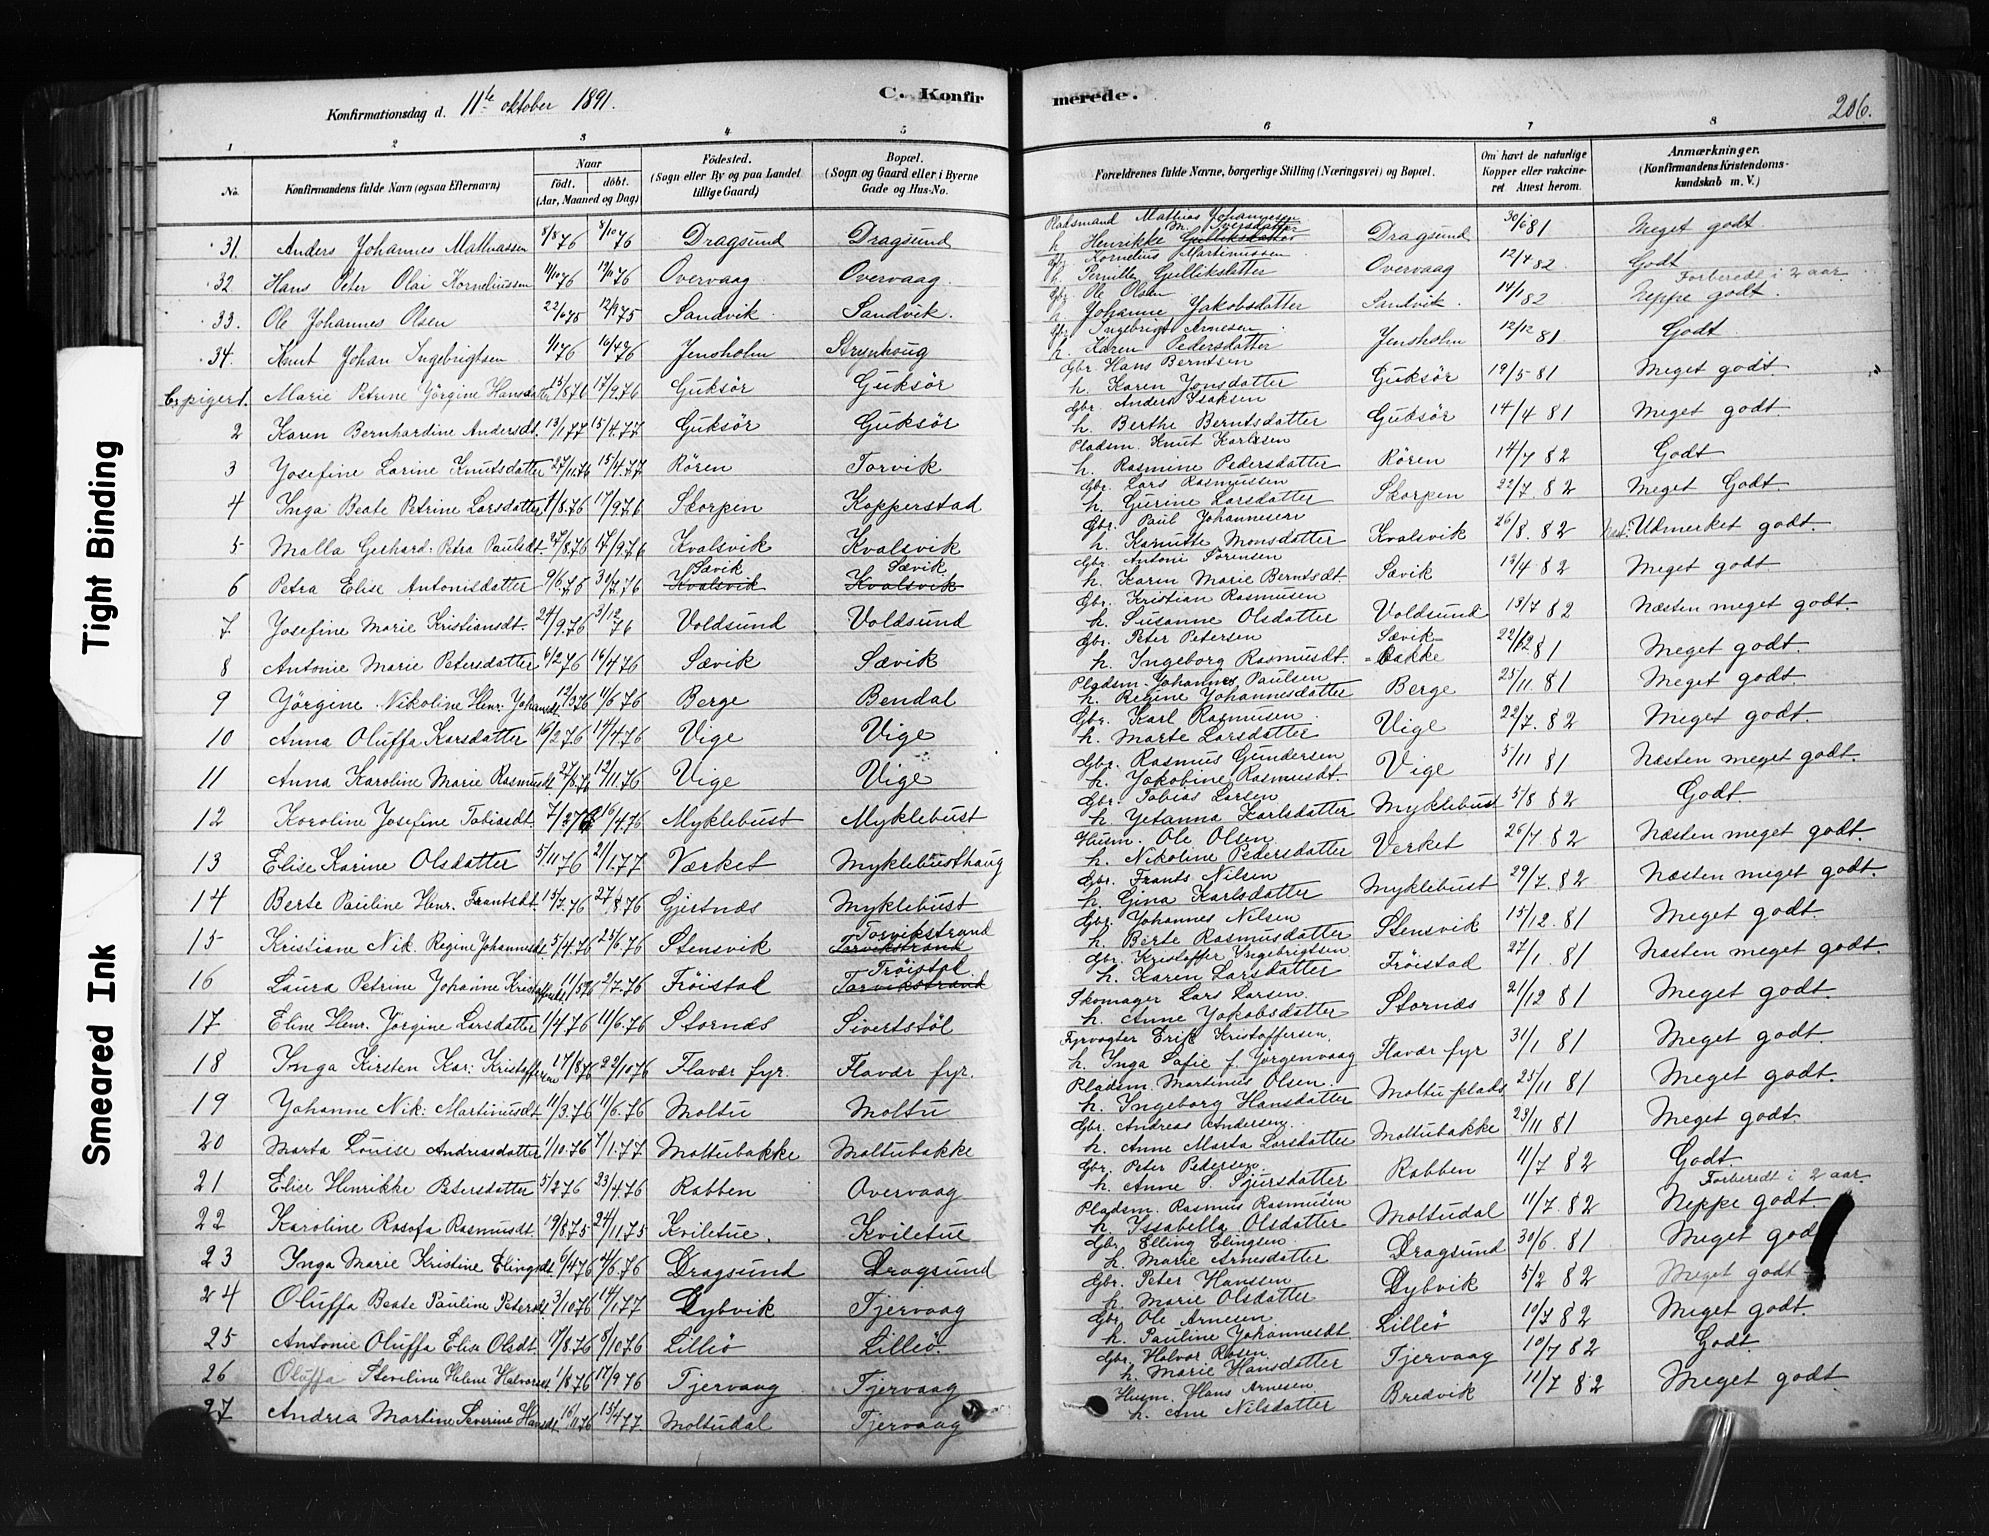 Konfirmationsdag d. 11te oktober 1891.
C. Konfir
merede.
206.
1 2 3 4 5 6 7 8
No.
Konfirmandens fulde Navn (ogsaa Efternavn)
Naar
födt. döbt.
(Aar, Maaned og Dag)
Födested.
(Sogn eller By og paa Landet
tillige Gaard)
Bopæl.
(Sogn og Gaard eller i Byerne
Gade og Hus-No.
Forældrenes fulde Navne, borgerlige Stilling (Næringsvei) og Bopæl.
Om havt de naturlige
Kopper eller vakcine-
ret Attest herom.
Anmærkninger.
(Konfirmandens Kristendoms-
kundskab m. V.)
31. Anders Johannes Mathiassen 8/10 76 Dragsund Dragsund Pladsmand Mathias Johannesen
h. Henrikke Gulliksdatter Iversdatter Dragsund 30/6 81 Meget godt
32 Hans Peter Olai Korneliussen Overvaag Overvaag. Gbr. Kornelius Martinussen
h. Pernille Gulliksdatter Overvaag 12/4 82 Godt
33. Ole Johannes Olsen 22/6 75 12/9 75 Sandvik Sandvik. Gbr. Ole Olsen
h. Johanne Jakobsdatter Sandvik. 14/1 82 Forberedt i 2 aar Neppe godt.
34. Knut Johan Ingebrigtsen 1/1 76 16/4 76 Jensholm Strynhoug Gbr. Ingebrigt Arnesen
h. Karen Pedersdatter Jensholm 12/12 81 Godt
B. piger 1. Marie Petrine Jörgine Hansdatter 17/9.76 Guksör Guksör Gbr. Hans Berntsen
h. Karen Jonsdatter Guksör 19/5 81 Meget godt.
2 Karen Bernhardine Andersdt. 13/1 77 15/4.77 Guksör Guksör Gbr. Anders Isaksen
h. Berthe Berntsdatter Guksör 14/4 81 Meget godt
3 Josefine Larine Knutsdatter 15/4.77 Rören Torvik Pladsm. Knut Karlsen
h. Rasmine Pedersdatter Rören 14/7 82 Godt
4 Inga Beate Petrine Larsdatter 1/8.76 17/9.76 Skorpen Kopperstad Gbr. Lars Rasmussen
h. Gurine Larsdatter Skorpen 22/7. 82 Meget Godt.
5 Malla Gerhard. Petra Paulsdt. 27/8.76 17/9.76 Kvalsvik Kvalsvik Gbr. Paul Johannesen
h. Karnitte Monsdatter Kvalsvik 26/8. 82 Næst. Udmerket godt.
6 Petra Elise Antonisdatter 9/6.76 30/7.76 Kvalsvik Sævik Kvalsvik Sævik Gbr. Antoni Sörensen
h. Karen Marie Berntsdt. Sævik 12/4 82 Meget godt
7. Josefine Marie Kristiansdt. 24/9.76 3/12 76 Voldsund Voldsund Gbr. Kristian Rasmusen
h. Susanne Olsdatter Voldsund 13/7 82 Næsten meget godt.
8 Antonie Marie Petersdatter 6/2 76 16/4.76 Sævik Sævik Gbr. Peter Petersen
h. Ingeborg Rasmusdt. Sævik Bakke 22/12 81 Meget godt.
9 Jörgine Nikoline Henr. Johansdt. 12/3 76 11/6.76 Berge Bendal Pladsm. Johannes Paulsen
h. Regine Johannesdatter Berge 25/11. 81 Meget godt.
10 Anna Oluffa Karsdatter 16/2 76 17/4.76 Vige Vige Gbr. Karl Rasmusen
h. Marte Larsdatter Vige 22/7. 82 Meget godt.
11 Anna Karoline Marie Rasmusdt. 27/8.76 12/11.76 Vige Vige Gbr. Rasmus Gundersen
h. Jakobine Rasmusdt. Vige 5/11 81 Næsten meget godt.
12 Karoline Josefine Tobiasdt. 7/2 76 16/4.76 Myklebust Myklebust Gbr. Tobias Larsen
h. Jetanna Karlsdatter Myklebust 5/8 82 Godt.
13 Elise Karine Olsdatter 5/11 76 21/1.77 Værket Myklebusthaug Husm. Ole Olsen
h. Nikoline Pedersdatter Verket 26/7. 82 Næsten meget godt.
14 Berte Pauline Henr. Frantsdt. 15/7.76 27/8 76 Gjertnæs Myklebust Gbr. Frants Nilsen
h. Gina Karlsdatter Myklebust 29/7. 82 Næsten meget godt.
15 Kristiane Nik. Regine Johannesdt. 5/4.76 25/6.76 Stensvik Torvikstrand Torvikstrand Gbr. Johannes Nilsen
h. Berte Rasmusdatter Stensvik 15/12. 81 Meget godt.
16 Laura Petrine Johanne Kristoffersdt. 11/5 76 2/7.76 Fröistad Torvikstrand Fröistad. Gbr. Kristoffer Ingebrigtsen
h. Karen Larsdatter Fröistad 27/1. 81 Næsten meget godt.
17 Eline Henr. Jörgine Larsdatter 1/4.76 11/6.76 Stornæs Sivertstöl Skomager Lars Larsen
h. Anne Jakobsdatter Stornæs 21/12 81 Meget godt.
18 Inga Kirsten Kar: Kristoffersen 17/8 76 22/10 76 Flavær fyr. Flavær fyr. Fyrvogter Erik Kristoffersen
h. Inga Sofie f. Jörgenvaag Flavær fyr 31/1 81 Meget godt.
19 Johanne Nik: Martinusdt. 11/3.76 11/6.76 Moltu Moltu Pladsm. Martinus Olsen.
h. Ingeborg Hansdatter Moltu plads 25/11 81 Meget godt.
20 Marta Louise Andreasdatter 1/10 76 7/1.77 Moltubakke Moltubakke Gbr. Andreas Andersen
h. Anne Marta Larsdatter Moltubakke 23/11 81 Meget godt.
21 Elier Henrikke Petersdatter 5/2 76 23/4.76 Rabben Overvaag Gbr. Peter Pedersen
h. Anne S. Sjursdatter Rabben 11/7 82 Godt.
22 Karoline Rosofa Rasmusdt. 19/8 75 24/11 75 Kviletue. Kviletue Pladsm. Rasmus Rasmusen
h. Issabella Olsdatter Moltudal 11/7. 82 Forberedt i 2 aar Neppe godt.
23 Inga Marie Kristine Elingsdt. 6/4 76 4/6.76 Dragsund Dragsund Gbr. Elling Elingsen
h. Marie Arnesdatter Dragsund 30/6. 81 Meget godt
24 Oluffa Beate Pauline Petersdt. 3/10 76 14/1 77 Dybvik Tjervaag Gbr. Peter Hanssen
h. Marie Olsdatter Dybvik 5/2 82 Meget godt
25 Antonie Oluffa Elise Olsdt. 17/8.76 8/10 76 Lilleö Lilleö. Gbr. Ole Arnesen
h. Pauline Johannesdt. Lilleö 10/7 82 Meget godt.
26 Oluffa Steviline Helene Halvorsdt. 1/8 76 17/9 76 Tjervaag Tjervaag Gbr. Halvor Rosen
h. Marie Hansdatter Tjervaag 10/7 82 Godt.
27 Andrea Martine Severine Hansdt. 16/11 76 15/4 77. Moltudal Tjervaag Husm. Hans Arnesen
h. Ane Nilsdatter Bredvik 11/7 82 Meget godt
Tight Binding
Smeared Ink